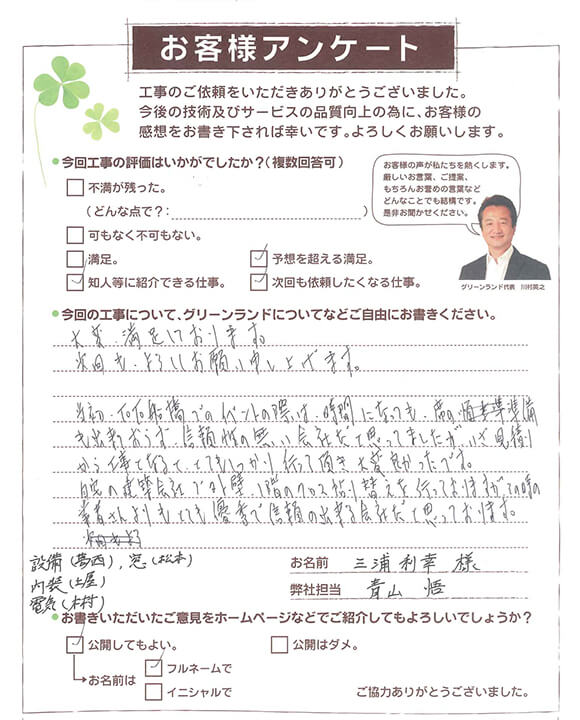 お客様アンケート
工事のご依頼をいただきありがとうございました。
今後の技術及びサービスの品質向上の為に、お客様の
感想をお書き下されば幸いです。よろしくお願いします。
●今回工事の評価はいかがでしたか?(複数回答可)
不満が残った。
(どんな点で?: )
可もなく不可もない。
満足。
予想を超える満足。
知人等に紹介できる仕事。
次回も依頼したくなる仕事。
お客様の声が私たちを熱くします。
厳しいお言葉、ご提案、
もちろんお誉めの言葉など
どんなことでも結構です。
是非お聞かせください。
グリーンランド代表 川村英之
●今回の工事について、グリーンランドについてなどご自由にお書きください。
大変満足しております。
次回もよろしくお願い申し上げます。
当初、船橋でのイベントの際は、時間になっても、席の準備
も出来ておらず、信頼性の無い会社だと思ってましたが、いざ見積り
から工事となると、とてもしっかり行って頂き大変良かったです。
自宅の建築会社で外壁、1階のクロス貼り替えを行っておりますが、その時の
業者さんよりもとても優秀で信頼の出来る会社だと思っております。
設備(葛西), 窓(松本)
内装(土屋)
電気(木村)
お名前 三浦利幸 様
弊社担当 青山 悟
●お書きいただいたご意見をホームページなどでご紹介してもよろしいでしょうか?
公開してもよい。
公開はダメ。
お名前は
フルネームで
イニシャルで
ご協力ありがとうございました。